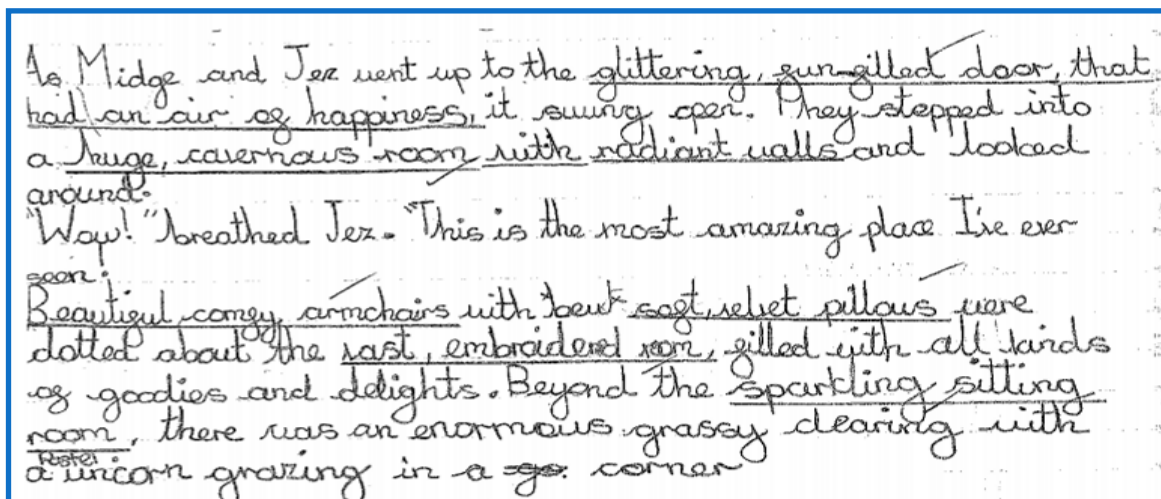 As Midge and Jez went up to the glittering, fun-filled door, that
had an air of happiness, it swung open. They stepped into
a huge, cavernous room with radiant walls and looked
around.
"Wow!" breathed Jez. "This is the most amazing place I've ever
seen.
Beautiful comfy armchairs with soft, velvet pillows were
dotted about the vast, embroidered room, filled with all kinds
of goodies and delights. Beyond the sparkling sitting
room, there was an enormous grassy clearing with
a unicorn grazing in a corner